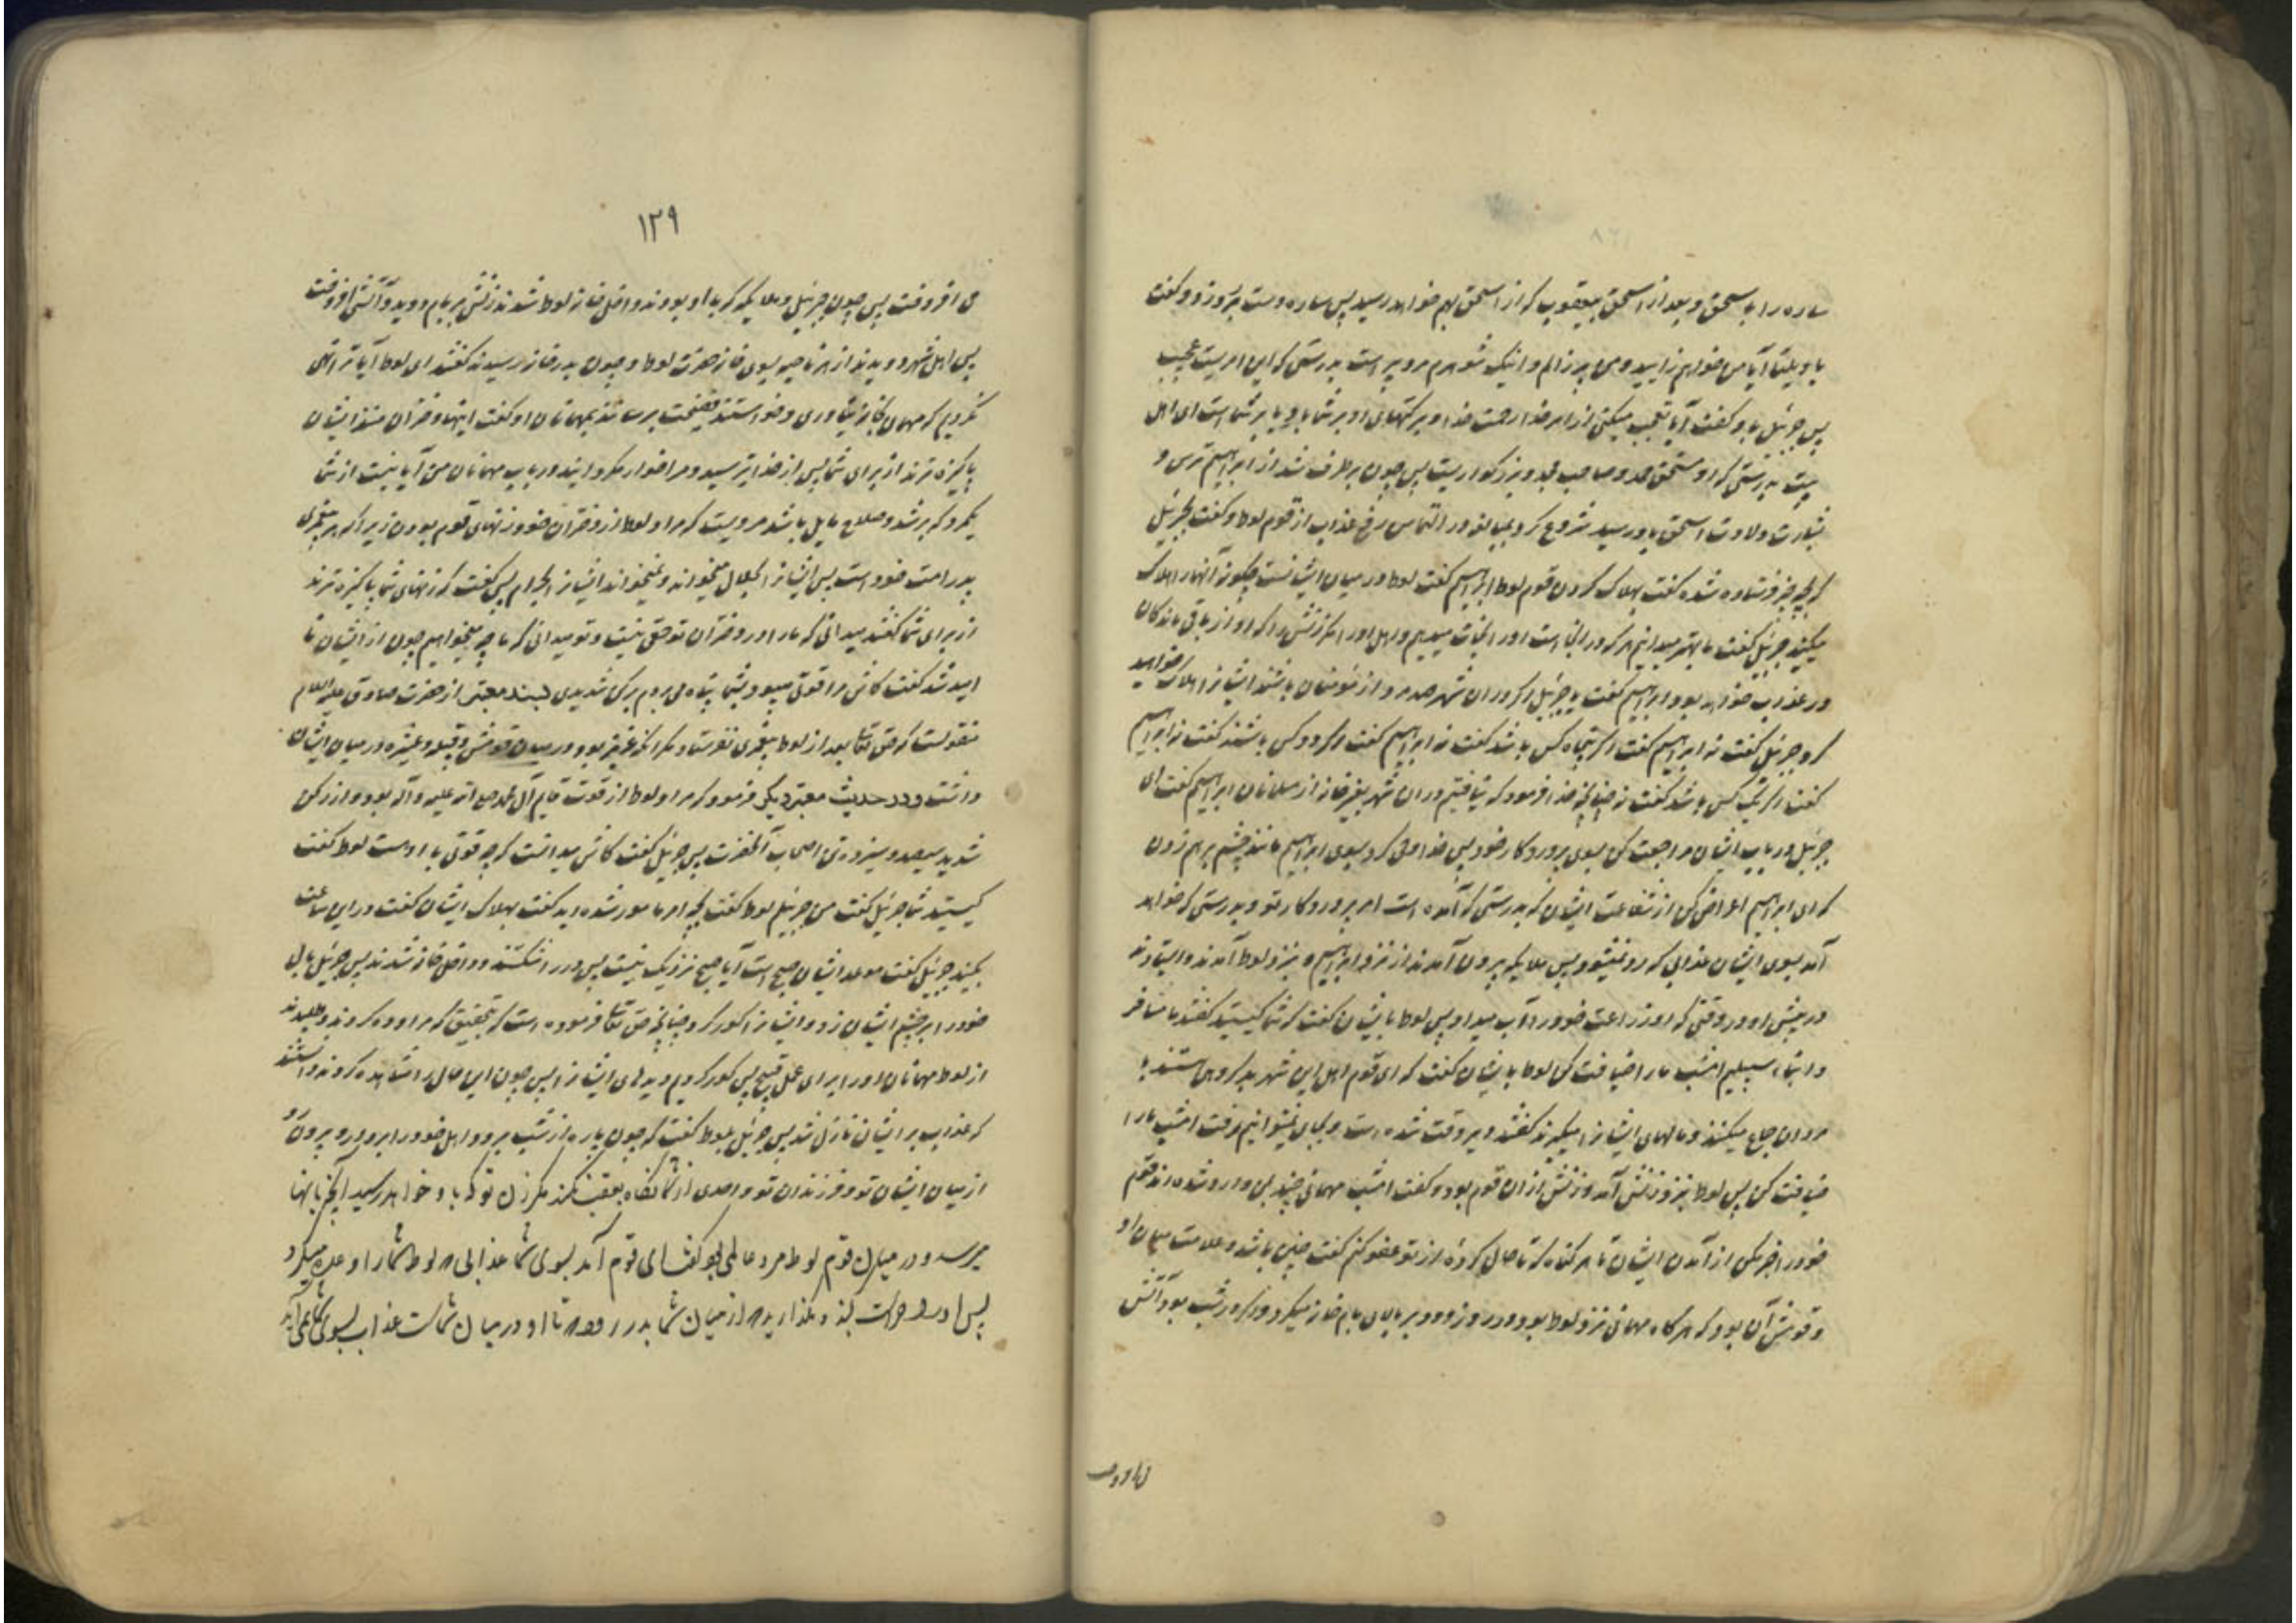 ساره را به اسحق و بعد از اسحق بیعقوب که از اسحق بهم خواهد رسید پس ساره دست بر رو زد و گفت
یا ویلتا آیا من خواهم زایید و من پیر زالم و اینک شوهرم مرد پیر است بدرستی که این امریست عجیب
پس جبرئیل باو گفت آیا تعجب میکنی از امر خدا رحمت خدا و برکتهای او بر شما باد یا بر شما است ای اهل
بیت بدرستی که او مستحق حمد و صاحب مجد و بزرگواریست پس چون برطرف شد از ابراهیم ترس و
بشارت ولادت اسحق باو رسید شروع کرد بمبالغه در التماس رفع عذاب از قوم لوط و گفت بجبرئیل
که بچه چیز فرستاده شده گفت بهلاک کردن قوم لوط ابراهیم گفت لوط در میان ایشانست چگونه آنها را هلاک
میکنید جبرئیل گفت ما بهتر میدانیم هر که در انجا است او را نجات میدهیم و اهل او را مگر زنش را که او از باقی ماندگان
در عذاب خواهد بود ابراهیم گفت یا جبرئیل اگر در ان شهر صد مرد از مؤمنان باشند ایشانرا هلاک خواهید
کرد جبرئیل گفت نه ابراهیم گفت اگر پنجاه کس باشد گفت نه ابراهیم گفت اگر دو کس باشند گفت نه ابراهیم
گفت اگر یک کس باشد گفت نه چنانچه خدا فرمود که نیافتیم در ان شهر بغیر خانه از مسلمانان ابراهیم گفت ای
جبرئیل در باب ایشان مراجعت کن بسوی پروردگار خود پس خدا وحی کرد بسوی ابراهیم مانند چشم بر هم زدن
که ای ابراهیم اعراض کن از شفاعت ایشان که بدرستی که آمده است امر پروردگار تو و بدرستی که خواهد
آمد بسوی ایشان عذابی که رد نمیشود پس ملایکه بیرون آمدند از نزد ابراهیم و بنزد لوط آمدند و ایستادند
در پیش او در وقتی که او زراعت خود را آب میداد پس لوط بایشان گفت که شما کیستید گفتند ما مسافر
و ابناء سبیلیم امشب ما را ضیافت کن لوط بایشان گفت که ای قوم اهل این شهر بد گروهی هستند با
مردان جماع میکنند و مالهای ایشانرا میگیرند گفتند دیر وقت شده است و بجای نمیتوانیم رفت امشب ما را
ضیافت کن پس لوط بنزد زنش آمد و زنش از ان قوم بود و گفت امشب مهمانی چند بمن وارد شده اند قوم
خود را خبر مکن از آمدن ایشان تا هر گناه که تا حال کردهٔ از تو عفو کنم گفت چنین باشد و علامت میان او
و قومش آن بود که هرگاه مهمانی نزد لوط بود در روز دود بر بالای بام خانه میکرد و اگر در شب بود آتش
۱۲۹
می افروخت پس چون جبرئیل و ملایکه که با او بودند داخل خانه لوط شدند زنش بر بام دوید و آتش افروخت
پس اهل شهر دویدند از هر ناحیه بسوی خانه حضرت لوط و چون بدر خانه رسیدند گفتند ای لوط آیا ترا نهی
نکردیم که مهمان بخانه نیاوری و خواستند فضیحت برسانند بمهمانان او گفت اینها دختران منند ایشان
پاکیزه ترند از برای شما پس از خدا بترسید و مرا خوار مگردانید در باب مهمانان من آیا نیست از شما
یکمرد که برشد و صلاح مایل باشد مرویست که مراد لوط از دختران خود زنهای قوم بودن زیرا که هر پیغمبری
پدر امت خود است پس ایشانرا بحلال میخواند و نمیخواند ایشانرا بحرام پس گفت که زنهای شما پاکیزه ترند
از برای شما گفتند میدانی که ما را در دختران تو حقی نیست و تو میدانی که ما چه میخواهیم چون از ایشان نا
امید شد گفت کاش مرا قوتی میبود بشما یا پناه می بردم برکن شدیدی بسند معتبر از حضرت صادق علیه السلام
منقولست که حق تعالی بعد از لوط پیغمبری نفرستاد مگر آنکه عزیز بود در میان قومش و قبیله و عشیره در میان ایشان
داشت و در حدیث معتبر دیگر فرمود که مراد لوط از قوت قایم آل محمد صلی الله علیه و آله بود و از رکن
شدید سیصد و سیزده تن اصحاب آنحضرت پس جبرئیل گفت کاش میدانست که چه قوتی با اوست لوط گفت
کیستید شما جبرئیل گفت من جبرئیلم لوط گفت بچه امر مامور شده اید گفت بهلاک ایشان گفت در این ساعت
بکنید جبرئیل گفت موعد ایشان صبح است آیا صبح نزدیک نیست پس در را شکستند و داخل خانه شدند پس جبرئیل بال
خود را بر چشم ایشان زد و ایشانرا کور کرد چنانچه حق تعالی فرموده است که بتحقیق که مراوده کردند و طلبیدند
از لوط مهمانان او را برای عمل قبیح پس کور کردیم دیدهای ایشانرا پس چون این حال را مشاهده کردند دانستند
که عذاب بر ایشان نازل شد پس جبرئیل بلوط گفت که چون پاره از شب برود اهل خود را بردار و بیرون رو
از میان ایشان تو و فرزندان تو و احدی از شما نگاه بعقب نکند مگر زن تو که باو خواهد رسید آنچه بانها
میرسد و در میان قوم لوط مرد عالمی بود گفت ای قوم آمد بسوی شما عذابی که لوط شما را وعده میکرد
پس او را حراست کنید و مگذارید که از میان شما بدر رود که تا او در میان شماست عذاب بسوی شما نمی آید